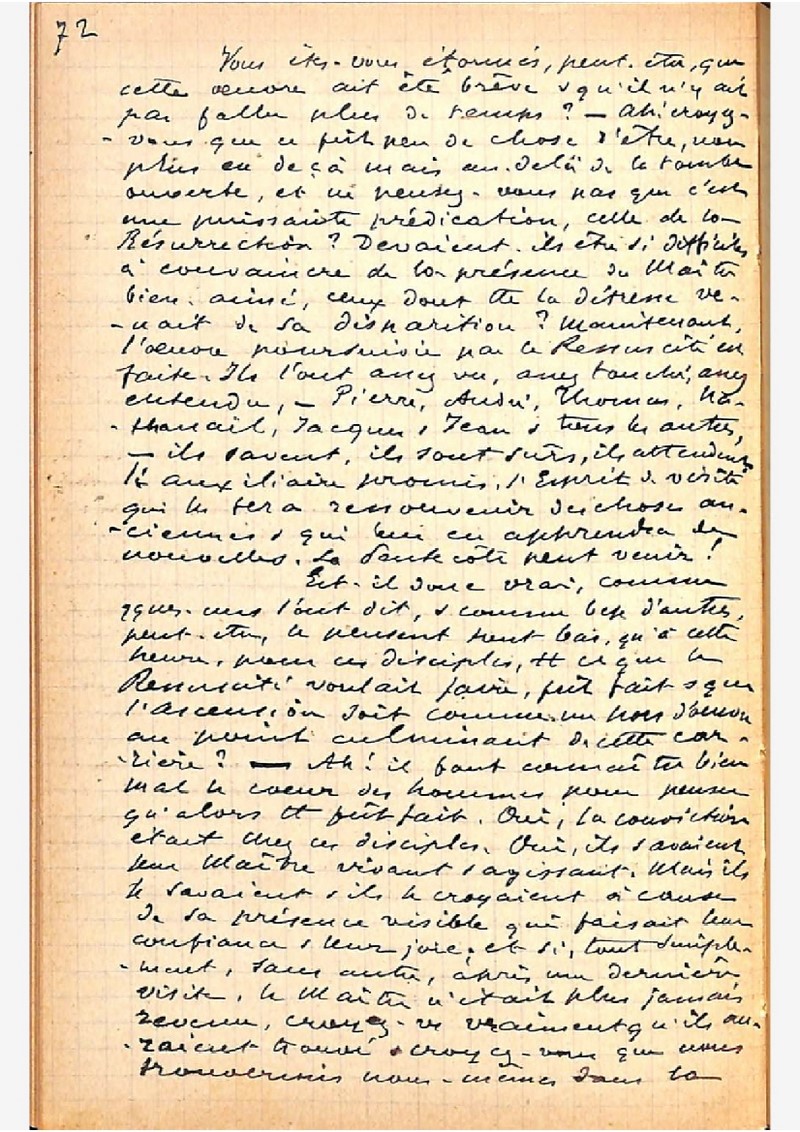 72
Vous êtes-vous étonnés, peut-être, que
cette œuvre ait été brève & qu'il n'y ait
pas fallu plus de temps ? — Ah! croyez-
-vous que ce fût peu de chose d'être, non
plus en deçà mais au-delà de la tombe
ouverte, et ne pensez-vous pas que c'est
une puissante prédication, celle de la
Résurrection ? Devaient-ils être si difficiles
à convaincre de la présence du Maître
bien-aimé, ceux dont tte la détresse ve-
-nait de sa disparition ? Maintenant,
l'œuvre poursuivie par le Ressuscité est
faite. Ils l'ont assez vu, assez touché, assez
entendu, — Pierre, André, Thomas, Na-
-thanaël, Jacques & Jean & tous les autres,
— ils savent, ils sont sûrs, ils attendent
l'auxiliaire promis, l'Esprit de vérité
qui les fera ressouvenir des choses an-
-ciennes & qui leur en apprendra de
nouvelles. La Pentecôte peut venir !
Est-il donc vrai, comme
qques-uns l'ont dit, & comme bcp d'autres,
peut-être, le pensent tout bas, qu'à cette
heure, pour ces disciples, tt ce que le
Ressuscité voulait faire, fût fait & que
l'Ascension soit comme un hors d'œuvre
au point culminant de cette car-
-rière ? — Ah! il faut connaître bien
mal le cœur des hommes pour penser
qu'alors tt fût fait. Oui, la conviction
était chez ces disciples. Oui, ils savaient
leur Maître vivant & agissant. Mais ils
le savaient & ils le croyaient à cause
de sa présence visible qui faisait leur
confiance & leur joie; et si, tout simple-
-ment, sans autre, après une dernière
visite, le Maître n'était plus jamais
revenu, croyez-vs vraiment qu'ils au-
-raient trouvé & croyez-vous que nous
trouverions nous-mêmes dans la